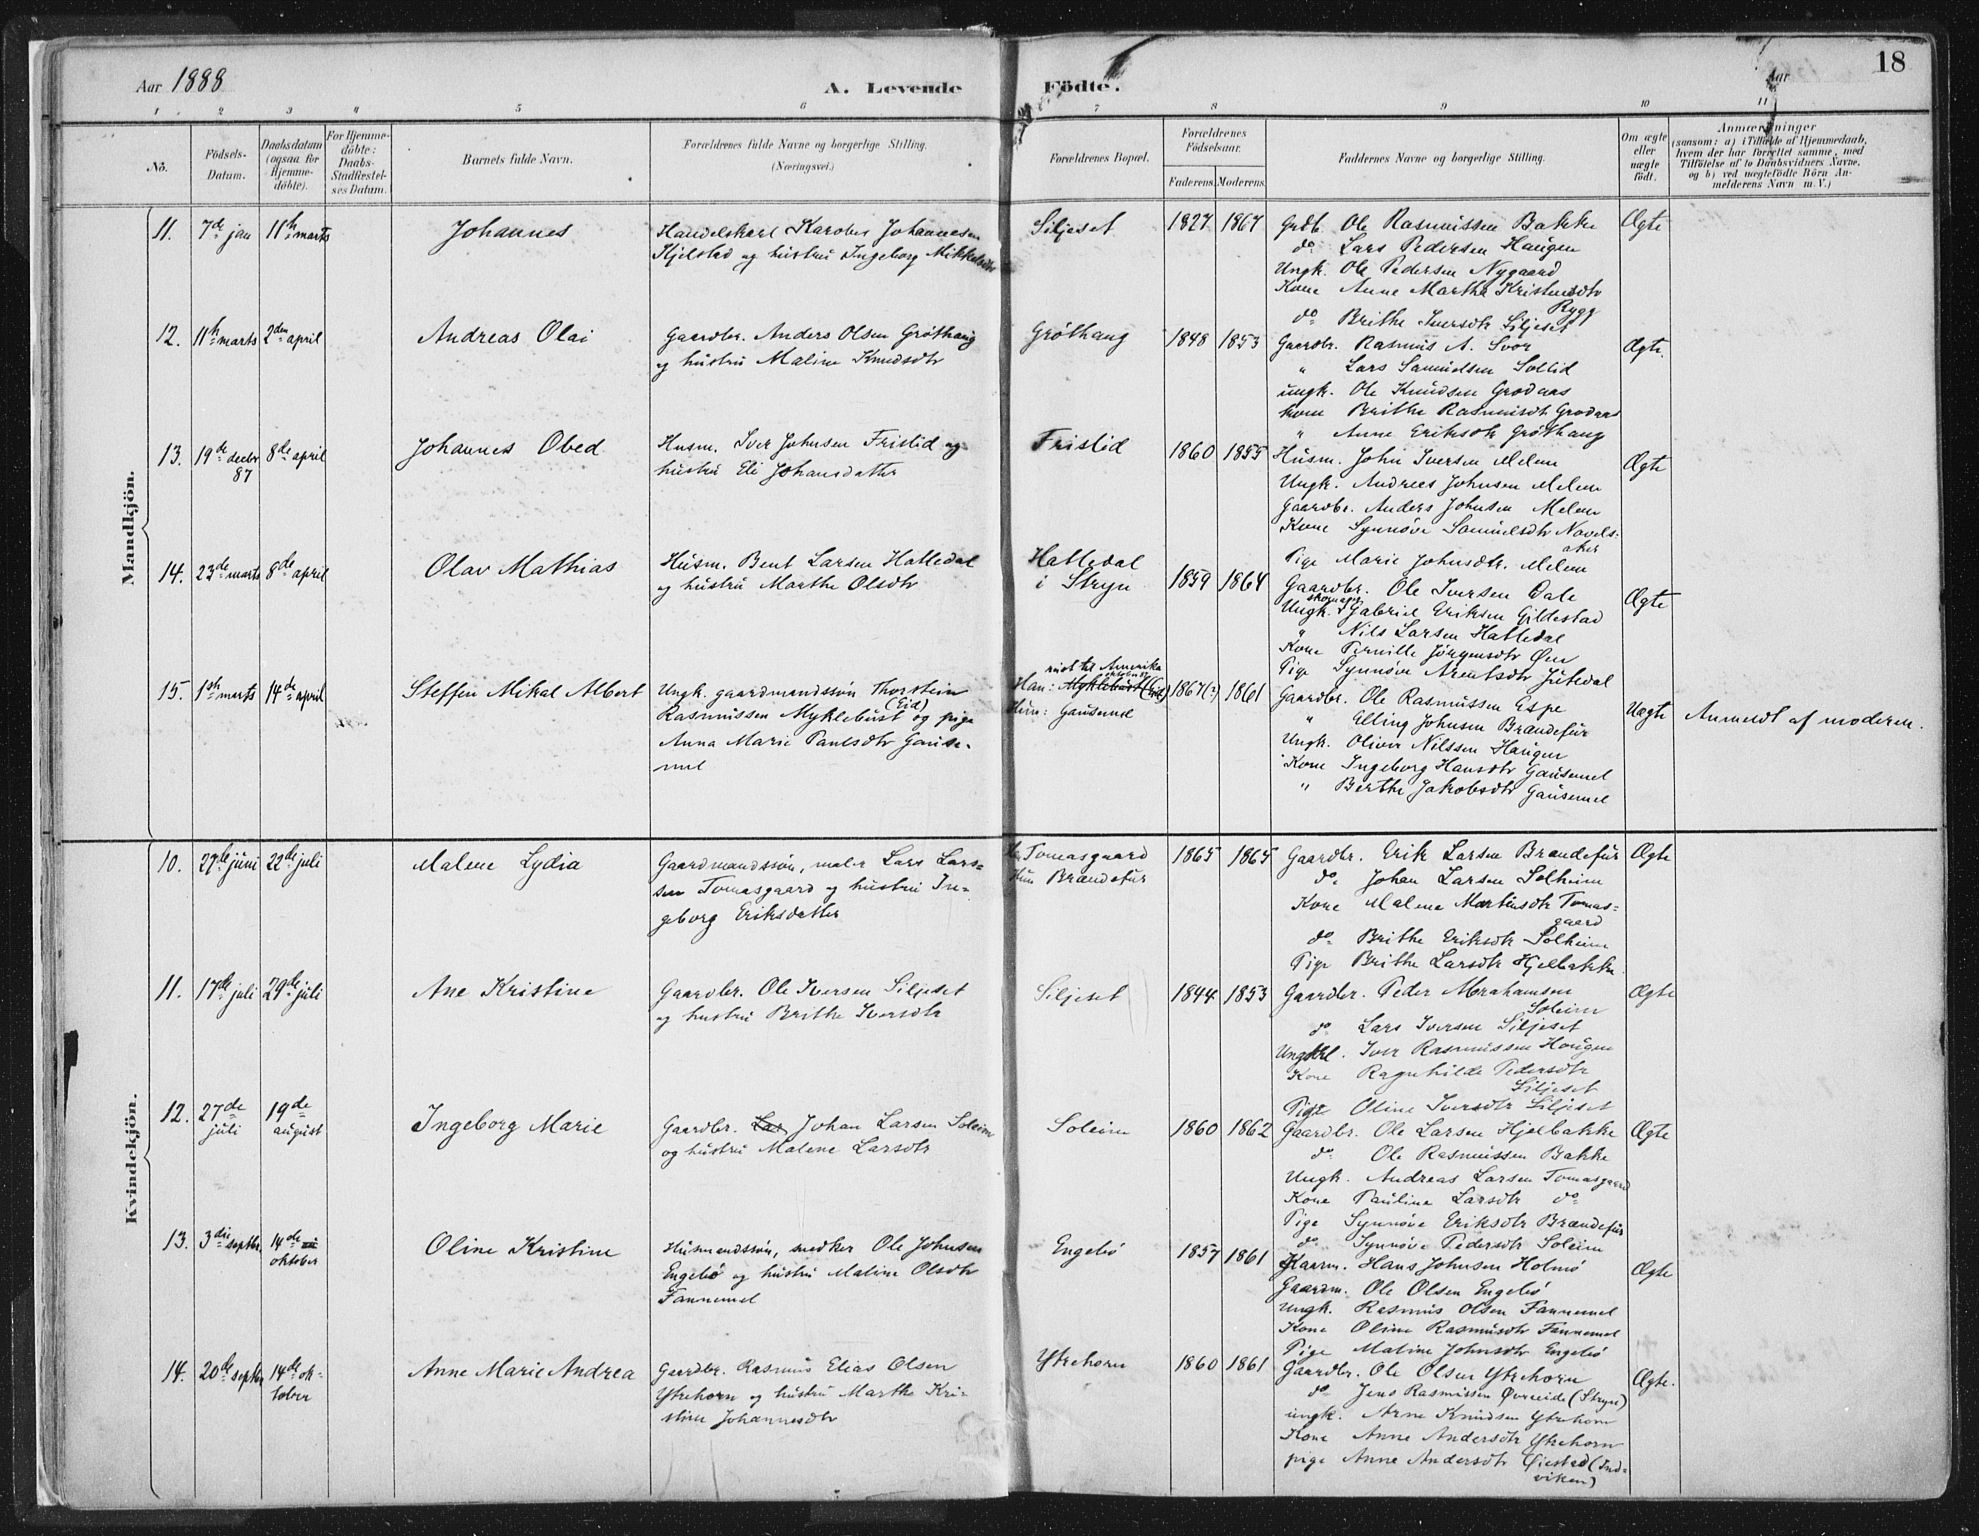 Aar 1888
A. Levende Födte.
Aar
18
1 2 3 4 5 6 7 8 9 10 11
No.
Födsels-Datum.
Daabsdatum (ogsaa for Hjemmedöbte).
For Hjemmedöbte: Daabs-Stadfæstelses Datum.
Barnets fulde Navn.
Forældrenes fulde Navne og borgerlige Stilling. (Næringsvei.)
Forældrenes Bopæl.
Forældrenes Födselsaar.
Faderens. Moderens.
Faddernes Navne og borgerlige Stilling.
Om ægte eller uægte födt.
Anmærkninger
(saasom: a) i Tilfælde af Hjemmedaab, hvem der har forrettet samme, med Tilföielse af to Daabsvidners Navne, og b) ved uægtefödte Börn Anmelderens Navn m. V.)
Mandkjön.
11. 7de jan 11te marts Johannes
Handelskarl Karolus Johannesen
Hjelstad og hustru Ingeborg Mikkelsdtr
Siljeset 1827 1867
Grdb. Ole Rasmussen Bakke
do Lars Pedersen Haugen
Ungk. Ole Pedersen Nygaard
Kone Anne Marthe Kristensdtr
Rygg
do Brithe Iversdtr Siljeset
Ægte
12. 11te marts 2den april Andreas Olai
Gaardbr. Anders Olsen Gröthaug
og hustru Maline Knudsdtr
Gröthaug 1848 1853
Gaardbr. Rasmus A. Svor
" Lars Samuelsen Sollid
ungk. Ole Knudsen Grodaas
kone Brithe Rasmusdtr Grodaas
" Anne Eriksdtr Gröthaug
Ægte.
13. 19de decbr 87 8de april Johannes Obed
Husm. Iver Johnsen Fristid og
hustru Eli Johansdatter
Fristid 1860 1855
Husm. John Iversen Melem
Ungk. Andreas Johnsen Melem
Gaardbr. Anders Johnsen Melem
Kone Synnöve Samuelsdtr Navelsaker
Pige Marie Johnsdtr. Melem
Ægte
14. 23de marts 8de april Olav Mathias
Husm. Bent Larsen Hatledal
og hustru Marthe Olsdtr
Hatledal
i Stryn 1859 1864
Gaardbr. Ole Iversen Dale
Ungk. skomager Gabriel Eriksen Gildestad
" Nils Larsen Hatledal
Kone Pernille Jörgensdtr Öen
Pige Synnöve Arentsdtr Jutedal
Ægte
15. 1ste marts 14de april Steffen Mikal Albert
Ungk. gaardmandssön Thorstein
Rasmussen Myklebust (Eid) og pige
Anna Marie Paulsdtr Gausemel
reist til Amerika
Han: Myklebust (Eid)
Hun: Gausemel
1867(?) 1861
Gaardbr. Ole Rasmussen Espe
" Elling Johnsen Brændefur
Ungk. Oliver Nilssen Haugen
Kone Ingeborg Hansdtr Gausemel
" Berthe Jakobsdtr Gausemel
Uægte
Anmeldt af moderen.
Kvindekjön.
10. 27de juni 22de juli Malene Lydia
Gaardmandssön, maler Lars Larssen
Tomasgaard og hustru Ingeborg
Eriksdatter
Han Tomasgaard
Hun Brændefur
1865 1865
Gaardbr. Erik Larsen Brændefur
do. Johan Larsen Solheim
Kone Malene Martinsdtr Tomasgaard
do Brithe Eriksdtr Solheim
Pige Brithe Larsdtr Hjelbakke
Ægte
11. 17de juli 29de juli Ane Kristine
Gaardbr. Ole Iversen Siljeset
og hustru Brithe Iversdtr
Siljeset 1844 1853
Gaardbr. Peder Abrahamsen
Soleim
do Lars Iversen Siljeset
Ungkl. Iver Rasmussen Hougen
Kone Ragnhilde Pedersdtr
Siljeset
Pige Oline Iversdtr Siljeset
Ægte
12. 27de juli 19de august Ingeborg Marie
Gaardbr. Las Johan Larsen Soleim
og hustru Malene Larsdtr
Soleim 1860 1862
Gaardbr. Ole Larsen Hjelbakke
do Ole Rasmussen Bakke
Ungk. Andreas Larsen Tomasgaard
Kone Pauline Larsdtr do
Pige Synnöve Eriksdtr Brændefur
do Synnöve Pedersdtr Soleim
Ægte
13. 3die septbr. 14de oktober Oline Kristine
Husmandssön, snedker Ole Johnsen
Engebö og hustru Maline Olsdtr
Fannemel
Engebö 1857 1861
Gaarm. Hans Johnsen Holmö
Gaardm. Ole Olsen Engebö
Ungk. Rasmus Olsen Fannemel
Kone Oline Rasmusdtr Fannemel
Pige Maline Johnsdtr Engebö
Ægte
14. 20de septbr 14de oktober Anne Marie Andrea
Gaardbr. Rasmus Elias Olsen
Ytrehorn og hustru Marthe Kristine
Johannesdtr
Ytrehorn 1860 1861
Gaardbr. Ole Olsen Ytrehorn
do Jens Rasmussen Övreeide (Stryn)
ungk. Arne Knudsen Ytrehorn
Kone Anne Andersdtr Ytrehorn
pige Anne Andersdtr Öiestad (Indviken)
Ægte.